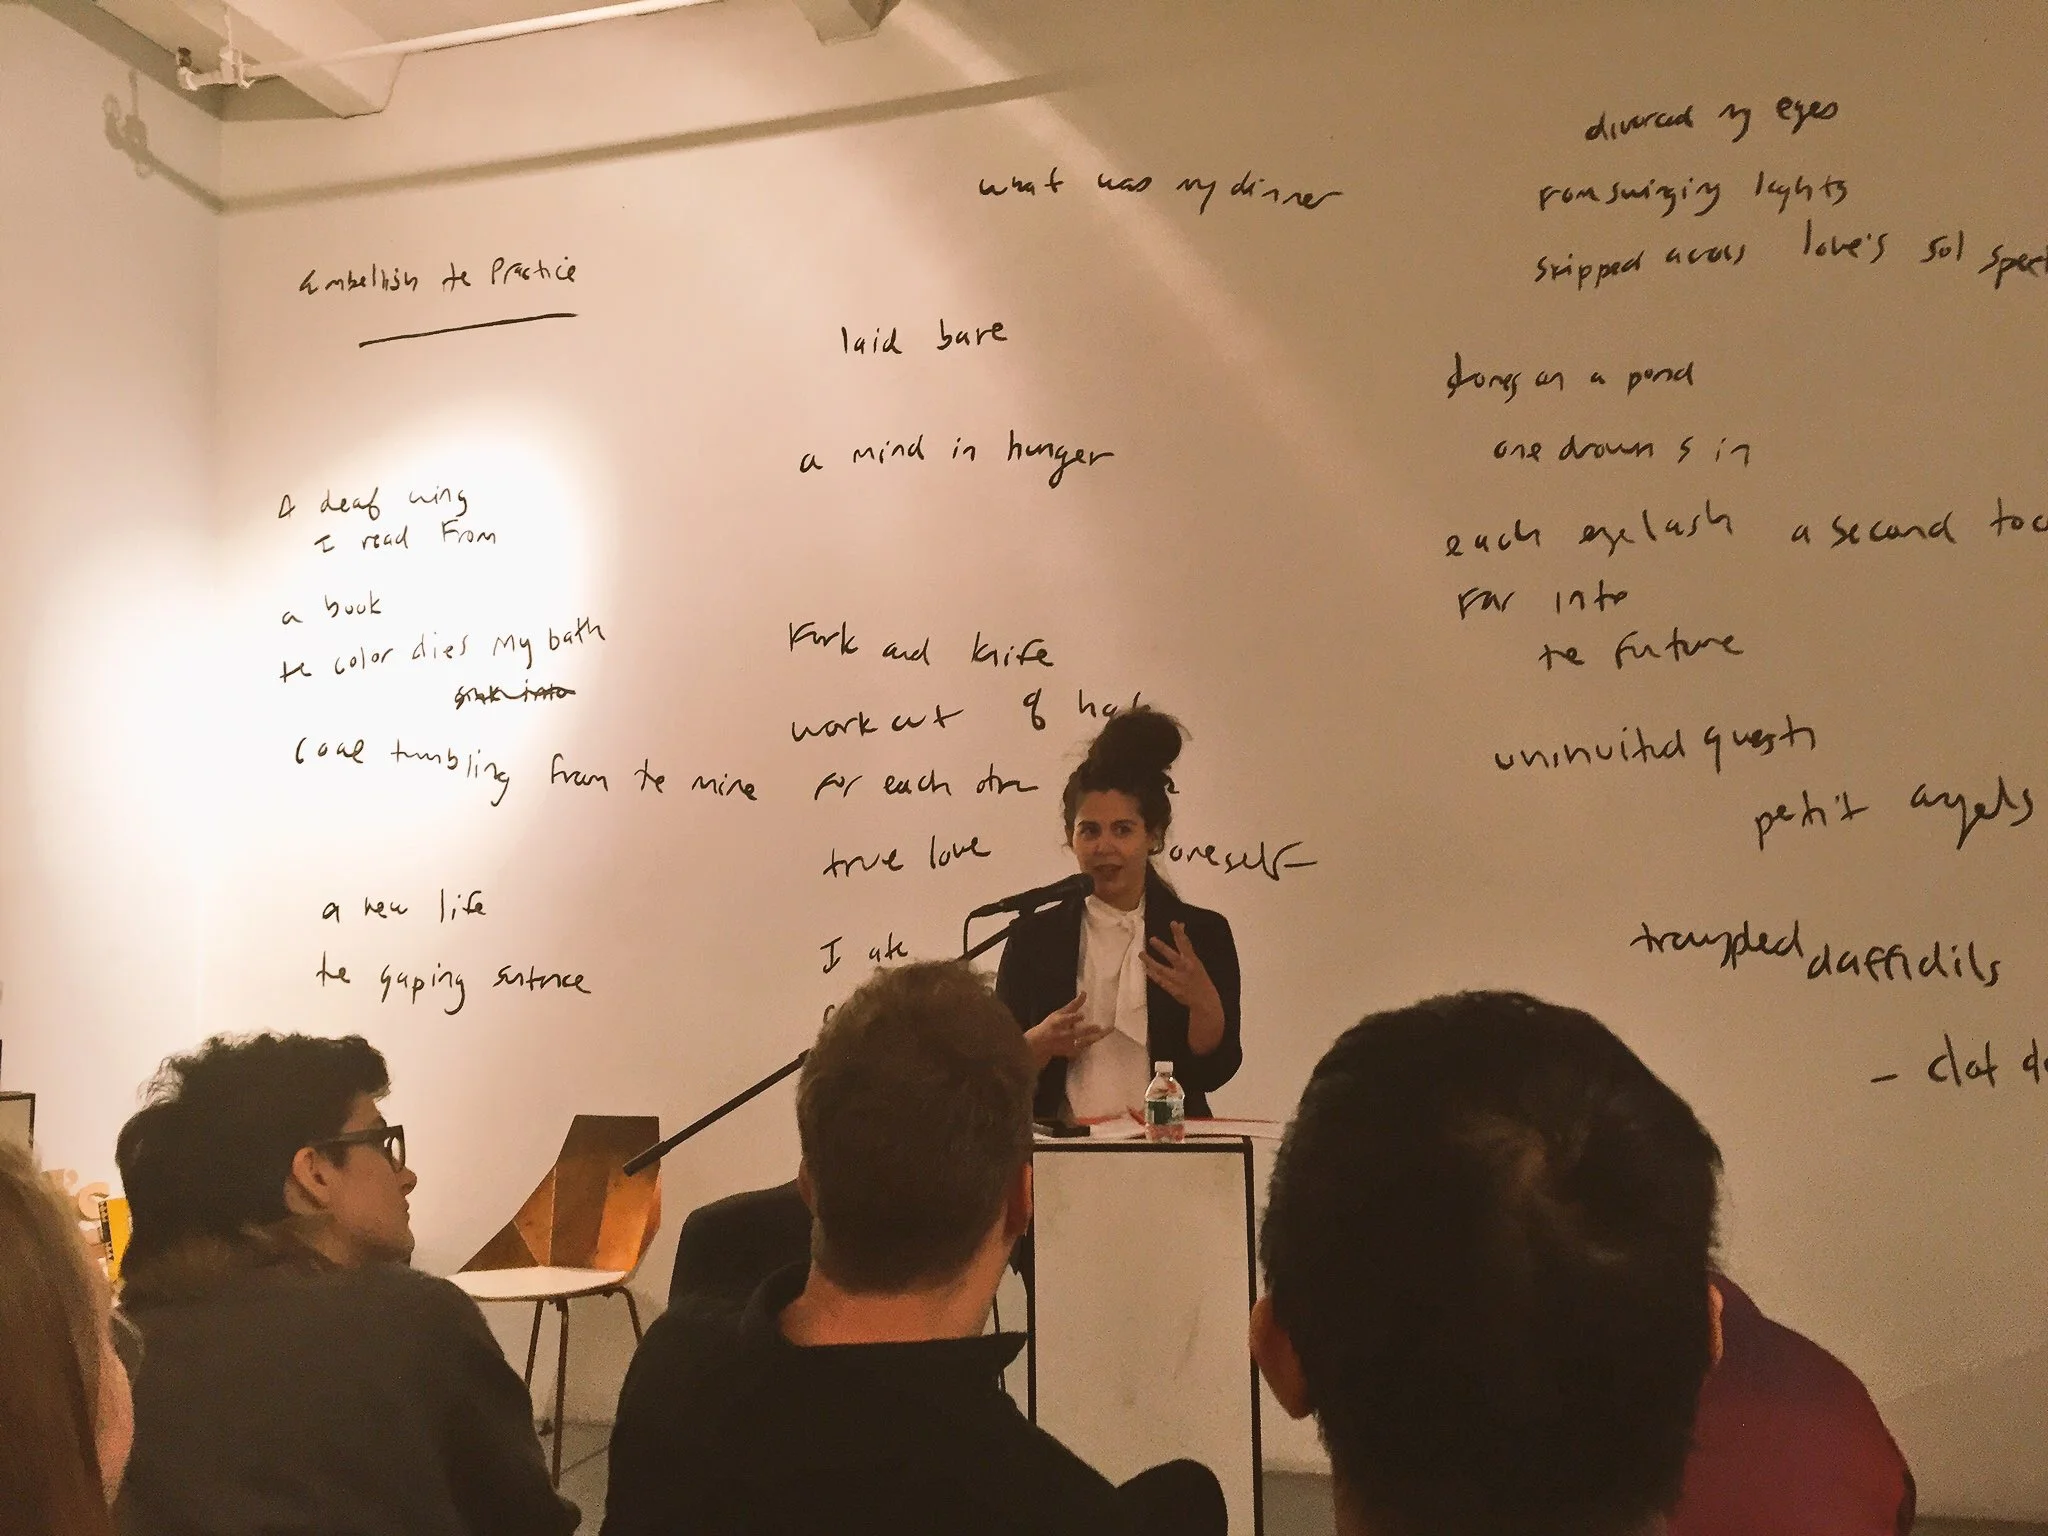 Embellish te Practice
A deaf wing
I read From
a book
te color dies my bath
sink into
Coal tumbling from te mine
a new life
te gaping sentence
what was my dinner
laid bare
a mind in hunger
Fork and knife
work out of
for each
true love
oneself
I ate
divorced my eyes
From swinging lights
skipped across love's sol
stones on a pond
one drown s in
each eyelash a second
Far into
te Future
uninvited guests
petit angels
trampled daffidils
-